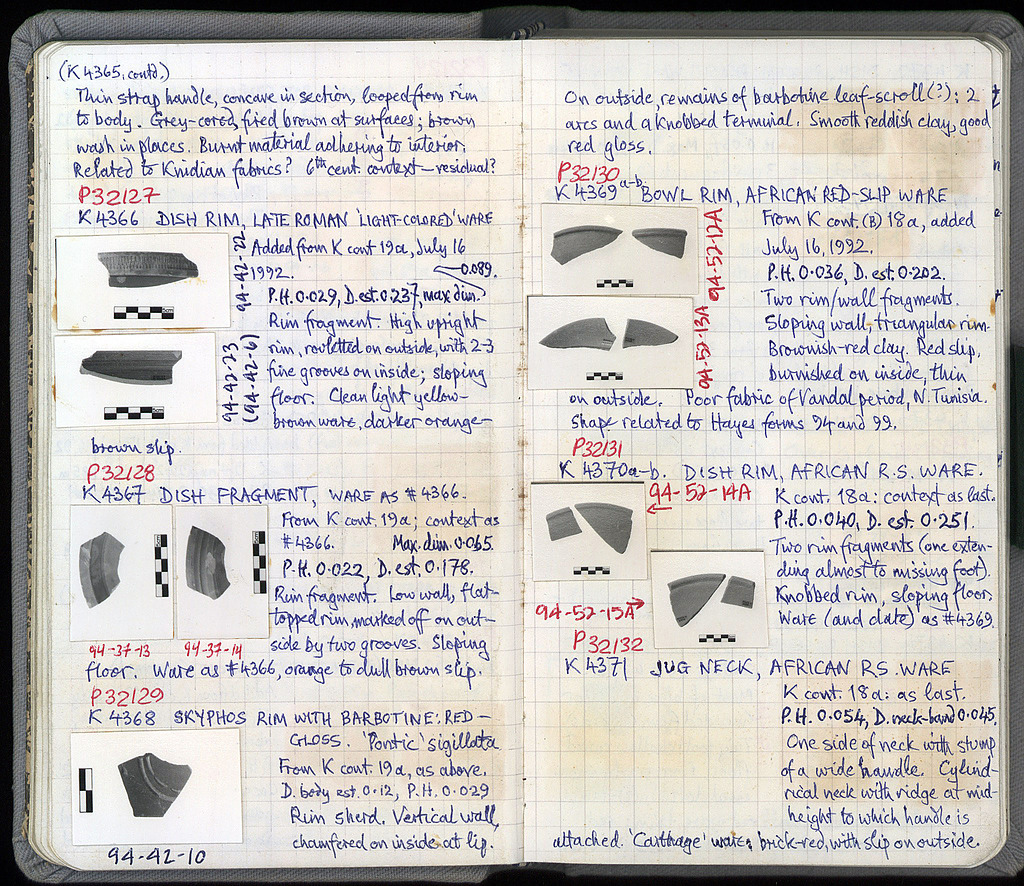 (K 4365, contd.)
Thin strap handle, concave in section, looped from rim
to body. Grey-cored, fired brown at surfaces; brown
wash in places. Burnt material adhering to interior.
Related to Knidian fabrics? 6th cent. context – residual?
P32127
K 4366 DISH RIM, LATE ROMAN 'LIGHT-COLORED' WARE
94-42-22
94-42-23
(94-42-6)
Added from K cont 19a, July 16
1992.
0.089.
P.H. 0.029, D. est. 0.237, max dim.
Rim fragment. High upright
rim, rouletted on outside, with 2-3
fine grooves on inside; sloping
floor. Clean light yellow-
brown ware, darker orange-
brown slip.
P32128
K 4367 DISH FRAGMENT, WARE AS #4366.
From K cont. 19a; context as
#4366. Max. dim. 0.065.
P.H. 0.022, D. est. 0.178.
Rim fragment. Low wall, flat-
topped rim marked off on out-
side by two grooves. Sloping
94-37-13 94-37-14
floor. Ware as #4366, orange to dull brown slip.
P32129
K 4368 SKYPHOS RIM WITH BARBOTINE: RED-
GLOSS. 'Pontic' sigillata
From K cont. 19a, as above.
D. body est. 0.12, P.H. 0.029
Rim sherd. Vertical wall,
chamfered on inside at lip.
94-42-10
On outside, remains of barbotine leaf-scroll (?): 2
arcs and a knobbed terminal. Smooth reddish clay, good
red gloss.
P32130
K 4369 a-b. BOWL RIM, AFRICAN RED-SLIP WARE
94-52-12A
94-52-13A
From K cont. (B) 18a, added
July 16, 1992.
P.H. 0.036, D. est. 0.202.
Two rim/wall fragments.
Sloping wall, triangular rim.
Brownish-red clay. Red slip,
burnished on inside, thin
on outside. Poor fabric of Vandal period, N. Tunisia.
Shape related to Hayes forms 94 and 99.
P32131
K 4370a-b. DISH RIM, AFRICAN R.S. WARE.
94-52-14A
K cont. 18a: context as last.
P.H. 0.040, D. est. 0.251.
Two rim fragments (one exten-
ding almost to missing foot).
Knobbed rim, sloping floor.
Ware (and date) as #4369.
94-52-15A
P32132
K 4371 JUG NECK, AFRICAN R.S. WARE
K cont. 18a: as last.
P.H. 0.054, D. neck-band 0.045.
One side of neck with stump
of a wide handle. Cylind-
rical neck with ridge at mid-
height to which handle is
attached. 'Carthage' ware, brick-red, with slip on outside.